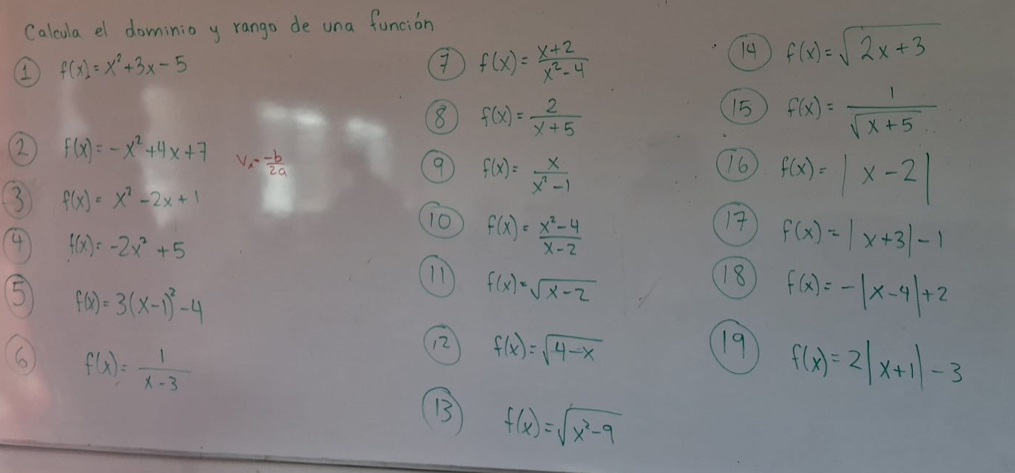 Calcula el dominio y rango de una función
① f(x)=x²+3x-5
② f(x)=-x²+4x+7 Vx=-b/2a
③ f(x)=x²-2x+1
④ f(x)=-2x²+5
⑤ f(x)=3(x-1)²-4
⑥ f(x)=1/(x-3)
⑦ f(x)=(x+2)/(x²-4)
⑧ f(x)=2/(x+5)
⑨ f(x)=x/(x²-1)
⑩ f(x)=(x²-4)/(x-2)
⑪ f(x)=√(x-2)
⑫ f(x)=√(4-x)
⑬ f(x)=√(x²-9)
⑭ f(x)=√(2x+3)
⑮ f(x)=1/√(x+5)
⑯ f(x)=|x-2|
⑰ f(x)=|x+3|-1
⑱ f(x)=-|x-4|+2
⑲ f(x)=2|x+1|-3